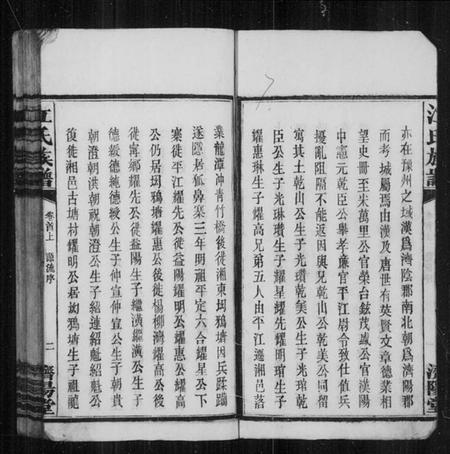 江氏族譜
濟陽堂
亦在豫州之域漢爲濟陰郡南北朝爲濟陽郡
而考城屬焉由漢及唐世有英賢文章德業相
望史冊至宋萬里公官榮台鉉茂誠公官漢陽
中憲元乾臣公舉孝廉官平江尉令致仕值兵
擾亂阻隔不能返因與兄乾山公乾美公同留
寓其土乾山公生子光環乾美公生子光琮乾
臣公生子光琳環生子耀星耀先耀明琮生子
耀惠琳生子耀高兄弟五人由平江遷湘邑落
業龍潭沖青竹橋後徙湘東坳鴉塘因兵蹂躪
遂隱居狐鼻寨三年明祖平定六合耀星公下
寨徙平江耀先公徙益陽耀明公耀惠公耀高
公仍居坳鴉塘耀惠公後徙楊柳灣耀高公後
徙寗鄉耀先公徙益陽生子繼漢繼漢公生子
德毅德純德綬公生子仲宣仲宜公生子朝貴
朝澄朝洪朝祝朝澄公生子紹連紹魁紹魁公
復徙湘邑古塘村耀明公居坳鴉塘生子祖祿
江氏族譜
卷首上
源流序
二
濟陽堂